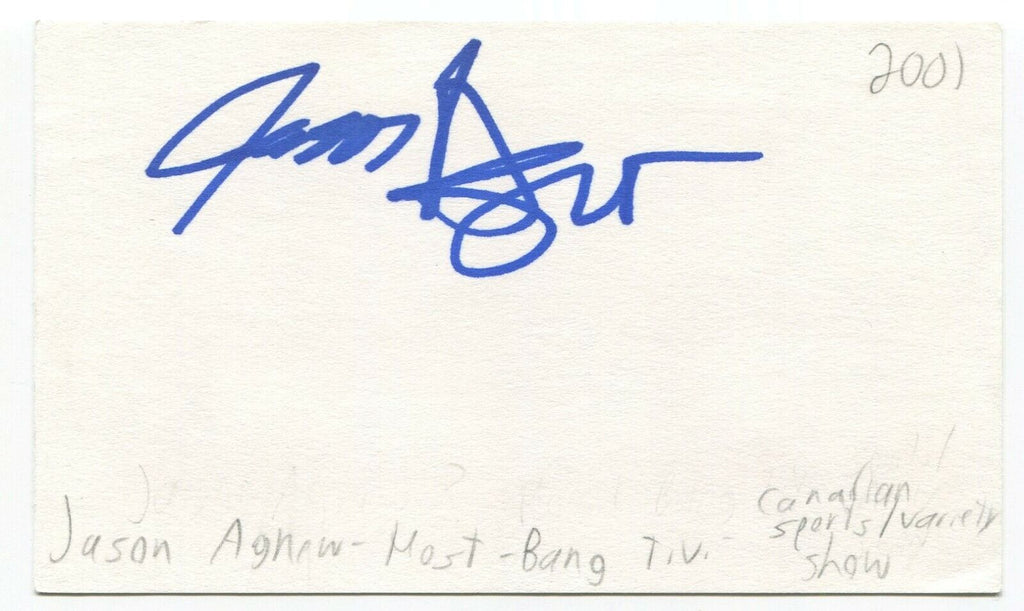 2001
Jason Agnew
Jason Agnew - Host - Bang T.V. - Canadian
sports/variety
show